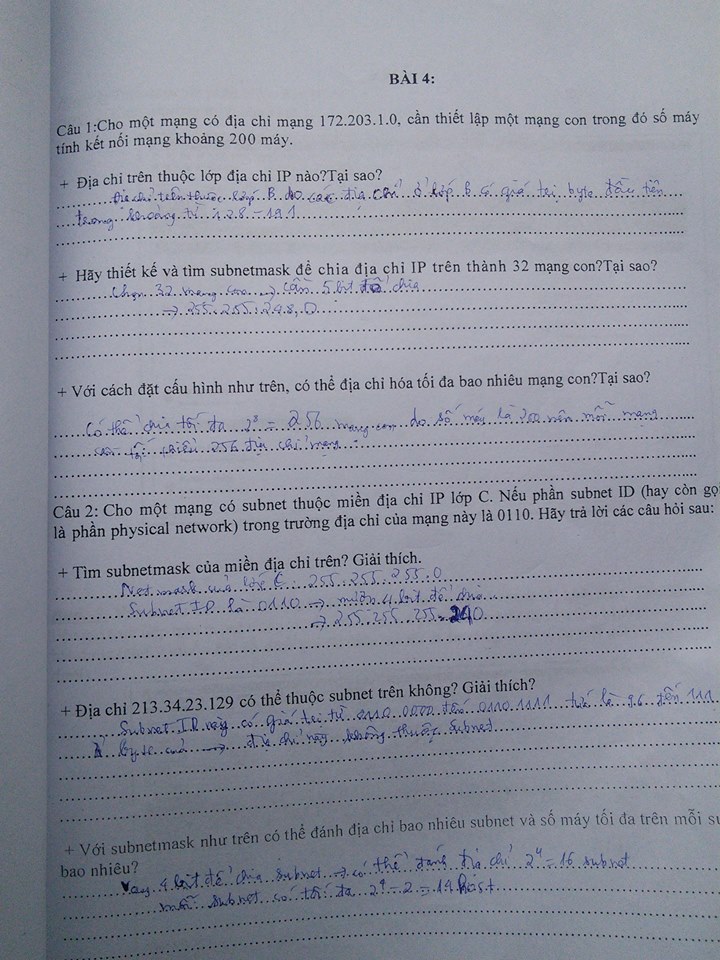 BÀI 4:
Câu 1:Cho một mạng có địa chỉ mạng 172.203.1.0, cần thiết lập một mạng con trong đó số máy
tính kết nối mạng khoảng 200 máy.
+ Địa chỉ trên thuộc lớp địa chỉ IP nào?Tại sao?
Địa chỉ trên thuộc lớp B do các địa chỉ ở lớp B có giá trị byte đầu tiên
trong khoảng từ 128 - 191
+ Hãy thiết kế và tìm subnetmask để chia địa chỉ IP trên thành 32 mạng con?Tại sao?
32 mạng con → cần 5 bit để chia
→ 255.255.248.0
+ Với cách đặt cấu hình như trên, có thể địa chỉ hóa tối đa bao nhiêu mạng con?Tại sao?
Có thể chia tối đa 2⁸ = 256 mạng con do số máy là 200 nên mỗi mạng
cần tối thiểu 256 địa chỉ mạng
Câu 2: Cho một mạng có subnet thuộc miền địa chỉ IP lớp C. Nếu phần subnet ID (hay còn gọi
là phần physical network) trong trường địa chỉ của mạng này là 0110. Hãy trả lời các câu hỏi sau:
+ Tìm subnetmask của miền địa chỉ trên? Giải thích.
Net mask của lớp C: 255.255.255.0
Subnet ID là 0110 → mượn 4 bit để chia
→ 255.255.255.240
+ Địa chỉ 213.34.23.129 có thể thuộc subnet trên không? Giải thích?
Subnet ID này có giá trị từ 0110 0000 đến 0110 1111 tức là 96 đến 111
ở byte cuối → địa chỉ này không thuộc subnet
+ Với subnetmask như trên có thể đánh địa chỉ bao nhiêu subnet và số máy tối đa trên mỗi
bao nhiêu?
4 bit để chia subnet → có thể đánh địa chỉ 2⁴ = 16 subnet
mỗi subnet có tối đa 2⁴ - 2 = 14 host